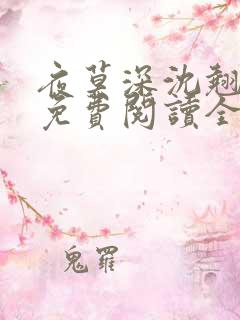 夜莫深沈翹
免費閱讀全
鬼羅